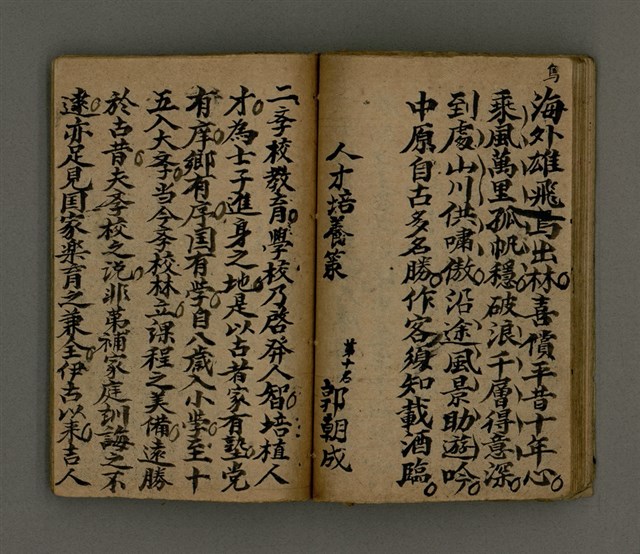 雋
海外雄飛鳥出林喜償平昔十年心
乘風萬里孤帆穩破浪千層得意深
到處山川供嘯傲沿途風景助遊吟
中原自古多名勝作客須知載酒臨
人才培養策
第十名 郭朝成
二李校教育學校乃啓發人智培植人
才為士子進身之地是以古者家有塾党
有庠鄉有序国有学自八歲入小学至十
五入大李当今李校林立課程之美備遠勝
於古昔夫李校之說非第補家庭訓誨之不
逮亦足見国家楽育之兼全伊古以来吉人